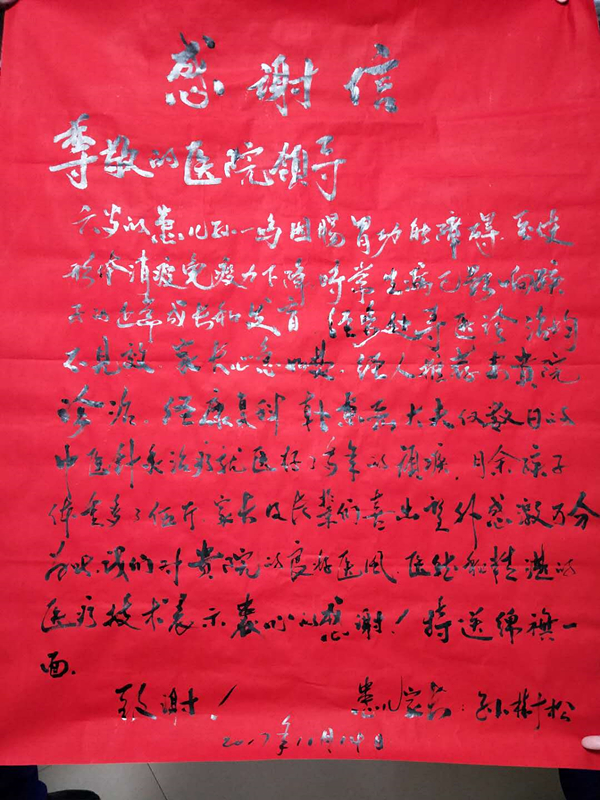 感谢信
尊敬的医院领导
六岁的患儿孙一鸣因肠胃功能障碍，至使
形体消瘦免疫力下降时常生病已影响孩
子的正常成长和发育 经多处寻医诊治均
不见效，家长心急如焚，经人推荐去贵院
诊治，经康复科 大夫仅数日的
中医针灸治疗就医好了多年的顽疾，月余孩子
体重多了伍斤，家长及长辈们喜出望外感激万分
为此，我们对贵院的良好医风，医德和精湛的
医疗技术表示衷心的感谢！特送绵旗一
面。
致谢！ 患儿家长：孙
2017年10月24日